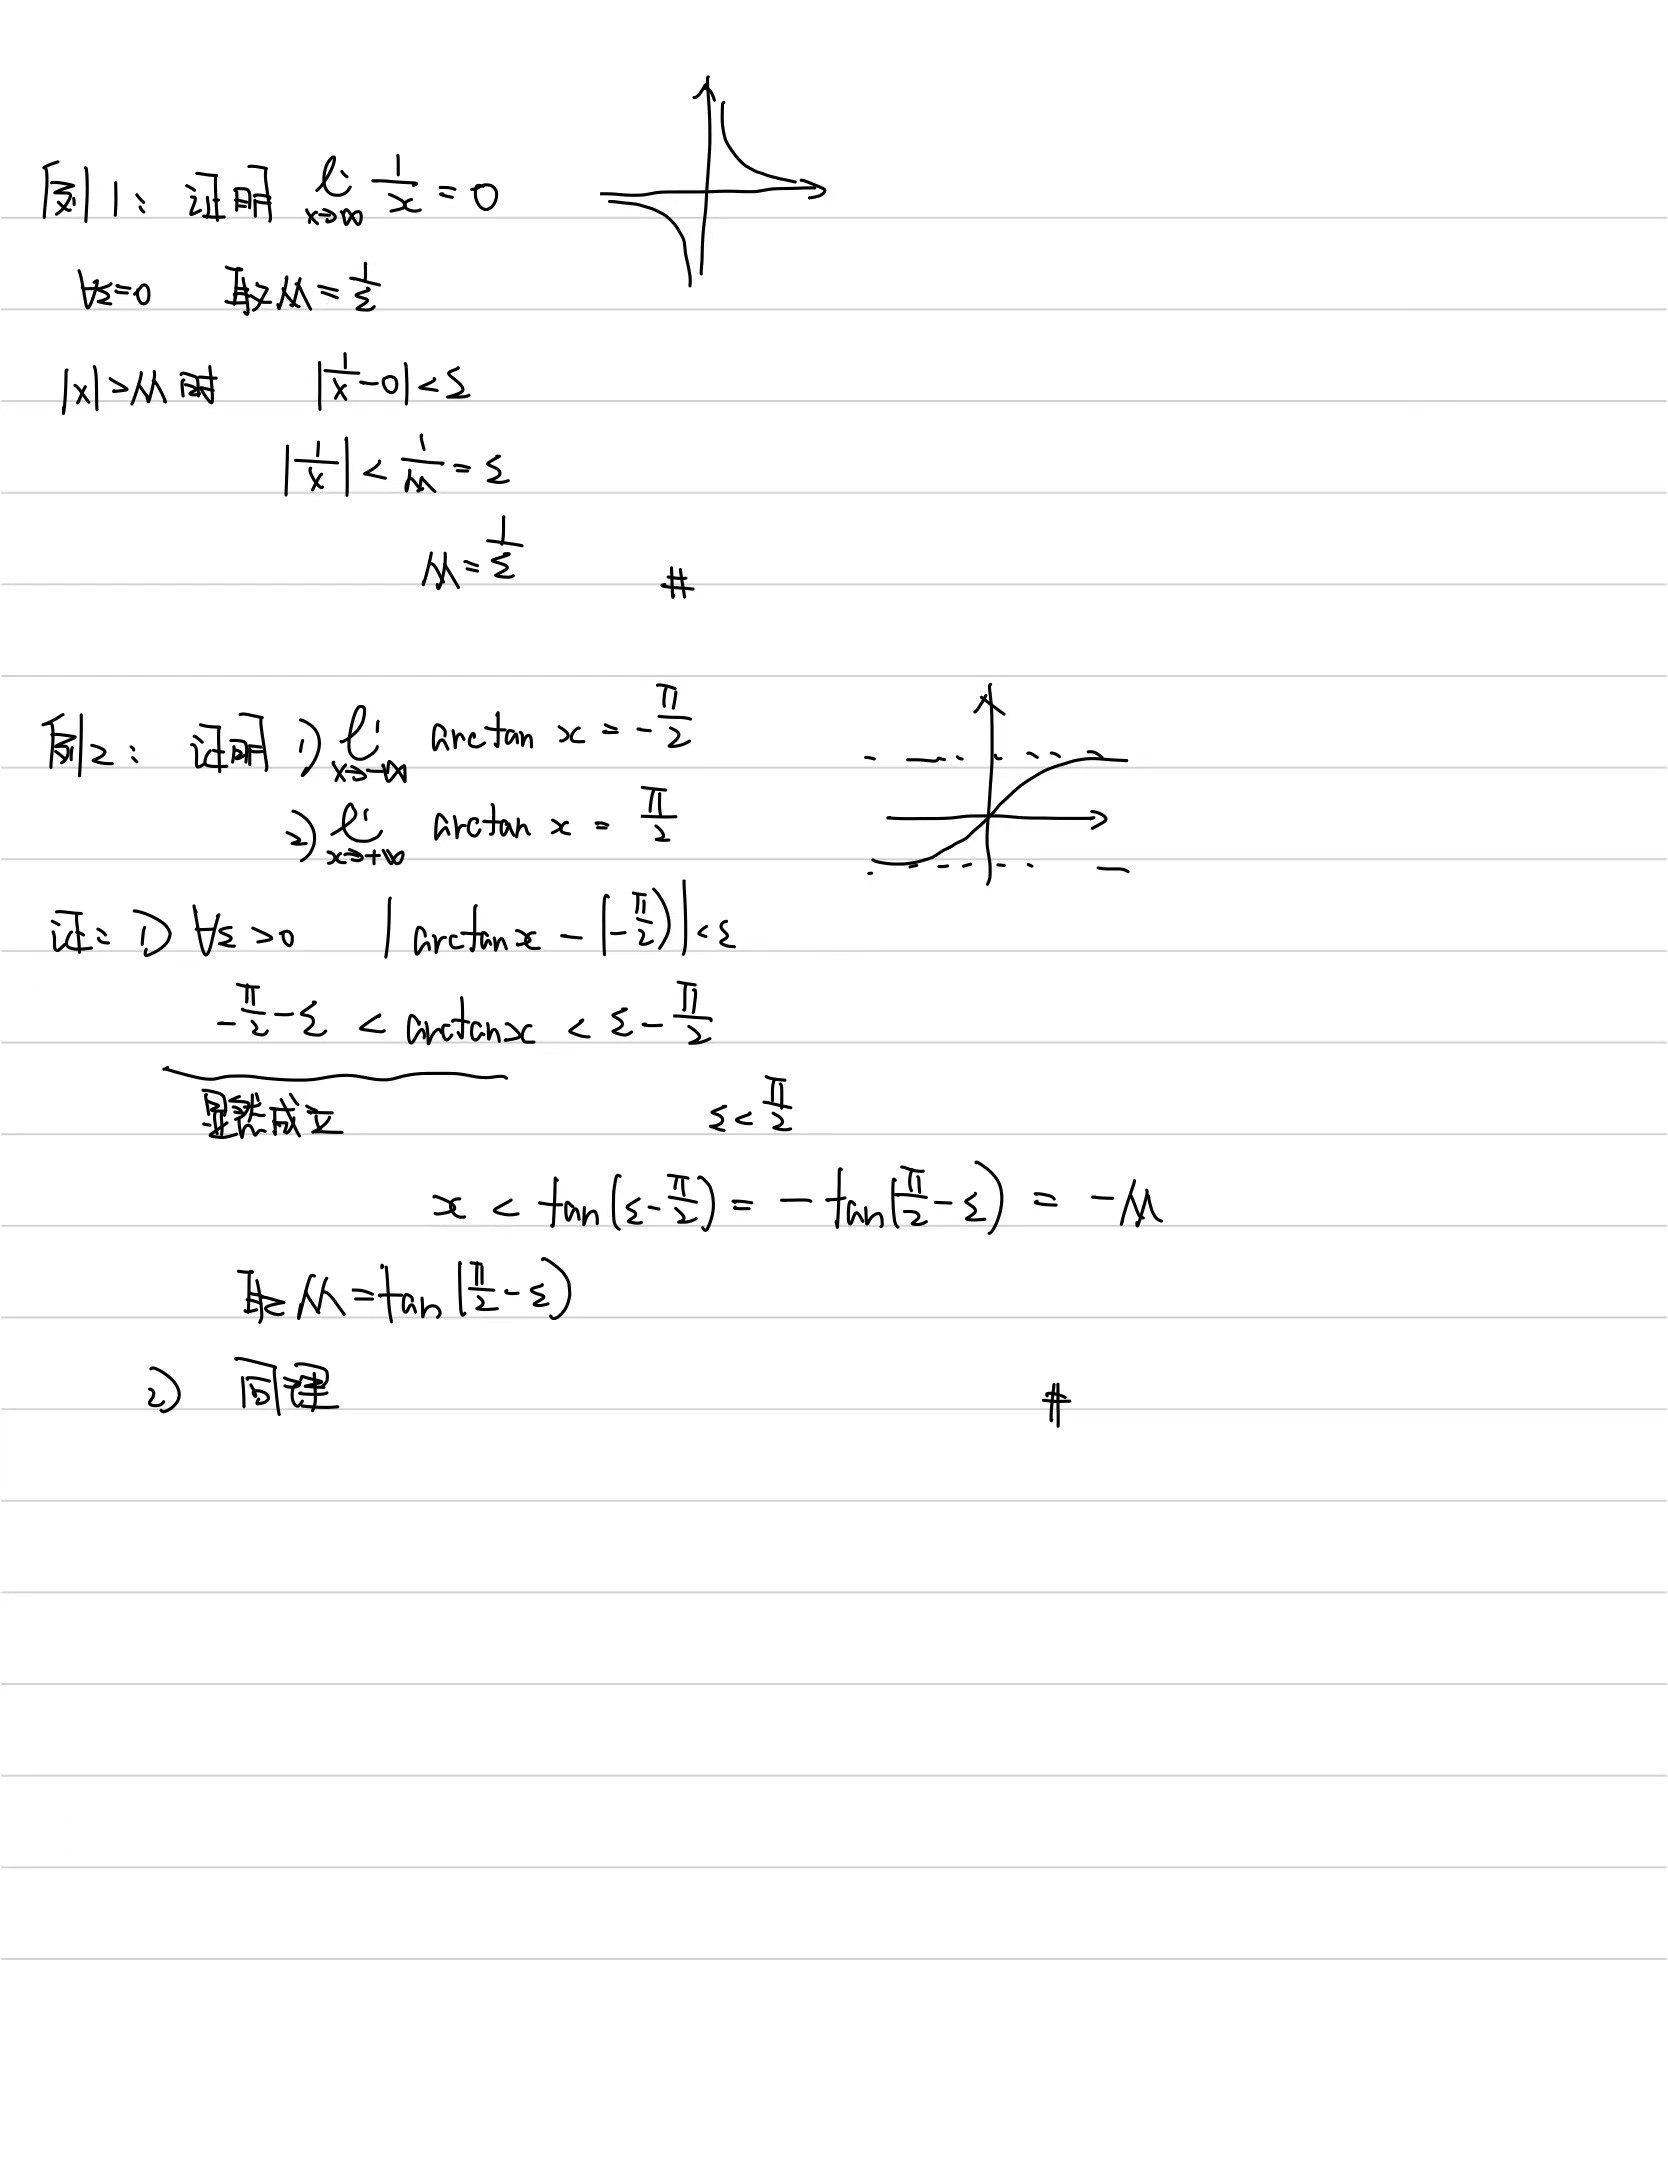 例1: 证明 li x→∞ 1/x = 0
∀ε=0 取M=1/ε
|x|>M时 |1/x-0|<ε
|1/x| < 1/M = ε
M=1/ε #
例2: 证明 1) li x→-∞ arctan x = -π/2
2) li x→+∞ arctan x = π/2
证: 1) ∀ε>0 |arctanx - (-π/2)|<ε
-π/2-ε < arctanx < ε-π/2
显然成立 ε<π/2
x < tan(ε-π/2) = -tan(π/2-ε) = -M
取M=tan(π/2-ε)
2) 同理 #